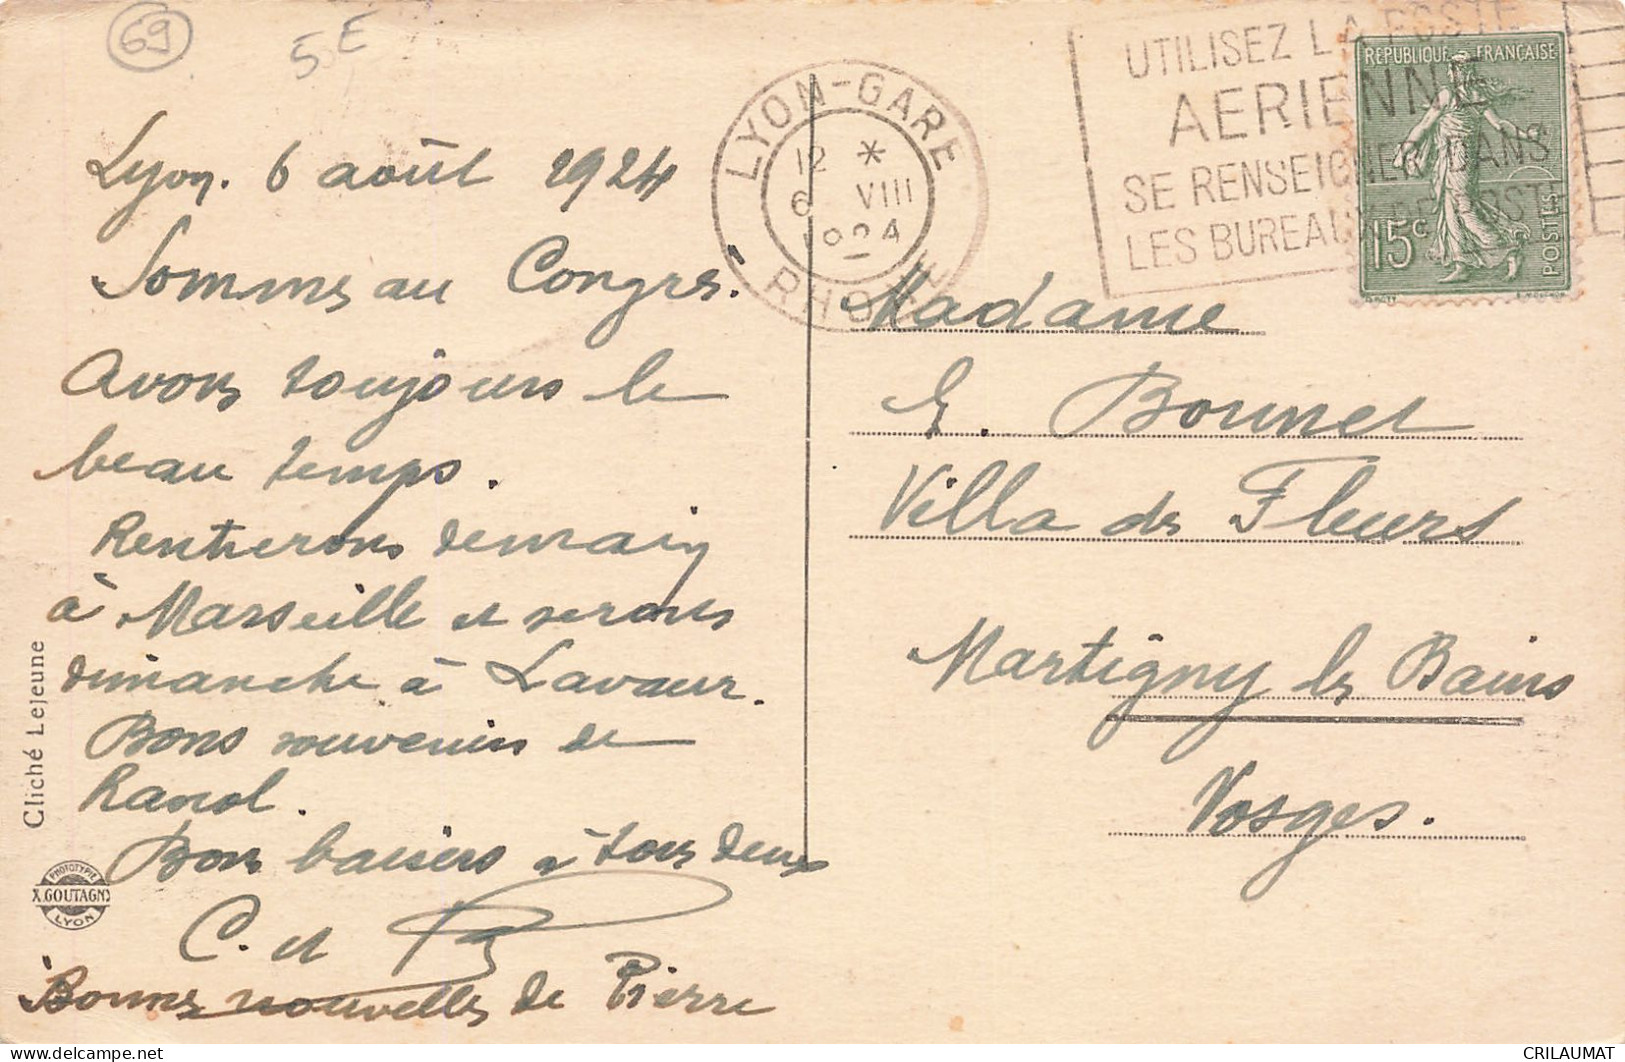 69
5E
Lyon. 6 août 1924
Sommes au Congrès.
Avons toujours le
beau temps.
Rentrerons demain
à Marseille et serons
dimanche à Lavaur.
Bons souvenirs de
Bons baisers à tous deux
C. et
Bonnes nouvelles de Pierre
Cliché Lejeune
PHOTOTYPIE
X. GOUTAGNY
LYON
LYON-GARE
12 *
6 VIII
1924
RHONE
UTILISEZ LA POSTE
AERIENNE
SE RENSEIGNER DANS
LES BUREAUX DE POSTE
REPUBLIQUE FRANÇAISE
15c
POSTES
Madame
E. Bonnet
Villa des Fleurs
Martigny les Bains
Vosges.
CRILAUMAT